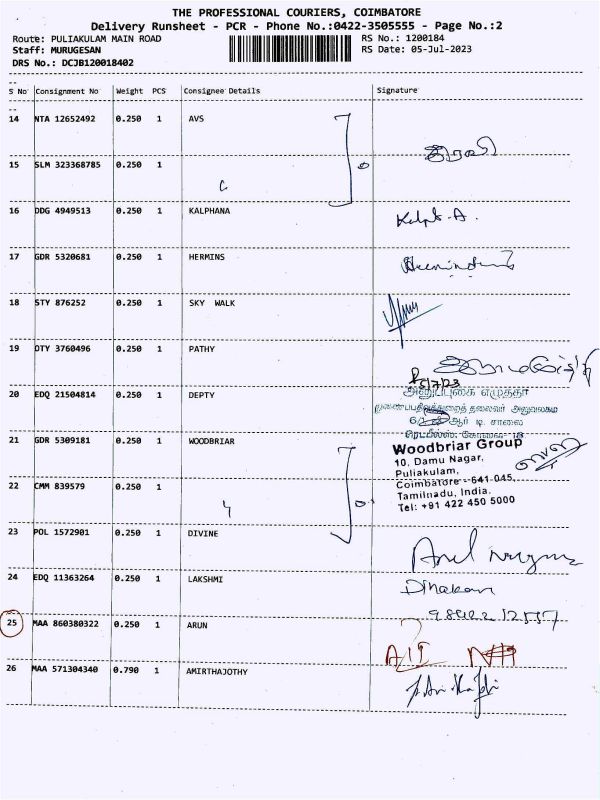 THE PROFESSIONAL COURIERS, COIMBATORE
Delivery Runsheet - PCR - Phone No.:0422-3505555 - Page No.:2
Route: PULIAKULAM MAIN ROAD RS No.: 1200184
Staff: MURUGESAN RS Date: 05-Jul-2023
DRS No.: DCJB120018402
S No Consignment No Weight PCS Consignee Details Signature
14 NTA 12652492 0.250 1 AVS
15 SLM 323368785 0.250 1
16 DDG 4949513 0.250 1 KALPHANA
17 GDR 5320681 0.250 1 HERMINS
18 STY 876252 0.250 1 SKY WALK
19 OTY 3760496 0.250 1 PATHY
5/7/23
20 EDQ 21504814 0.250 1 DEPTY
அனுப்புகை எழுத்தர்
தலைவர் அலுவலகம்
ஆர் டி. சாலை
21 GDR 5309181 0.250 1 WOODBRIAR
Woodbriar Group
10, Damu Nagar,
Puliakulam,
Coimbatore - 641 045,
Tamilnadu, India.
Tel: +91 422 450 5000
22 CMM 839579 0.250 1
23 POL 1572901 0.250 1 DIVINE
24 EDQ 11363264 0.250 1 LAKSHMI
25 MAA 860380322 0.250 1 ARUN
26 MAA 571304340 0.790 1 AMIRTHAJOTHY